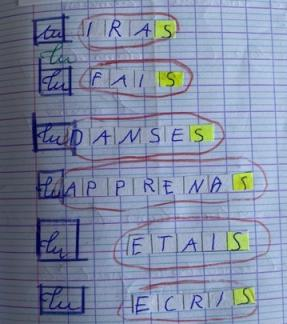 tu IRAS
tu
tu FAIS
tu DANSES
tu APPRENAS
tu ETAIS
tu ECRIS